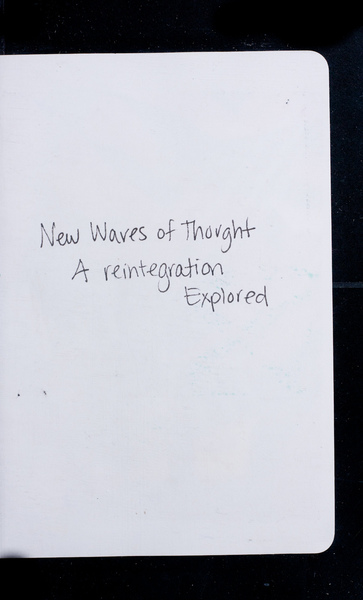 New Waves of Thought
A reintegration
Explored